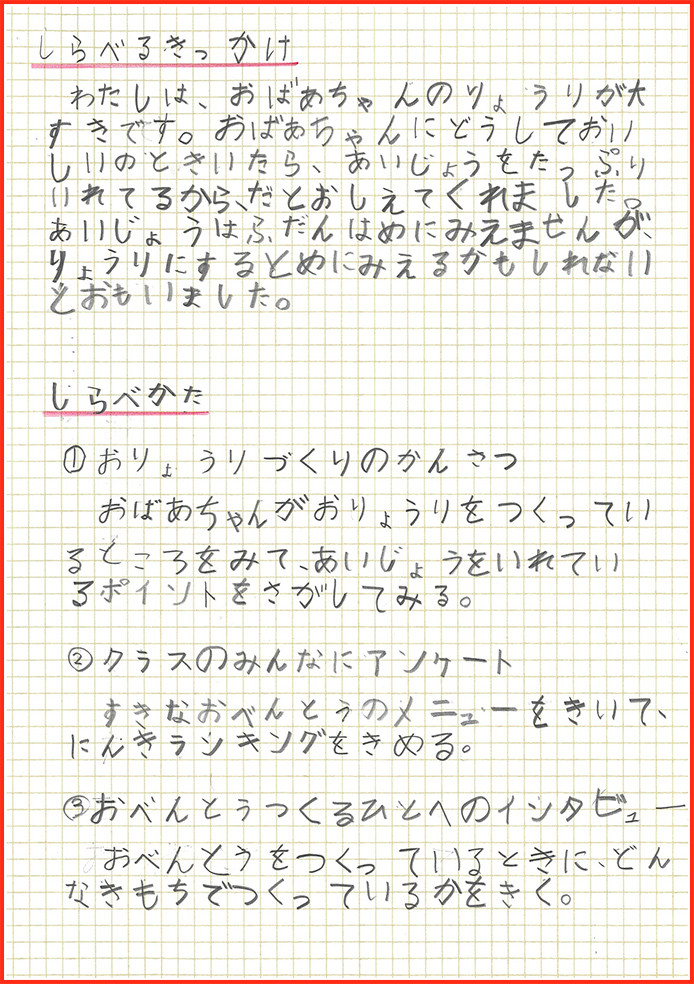 しらべるきっかけ
わたしは、おばあちゃんのりょうりが大
すきです。おばあちゃんにどうしておい
しいのときいたら、あいじょうをたっぷり
いれてるから、だとおしえてくれました。
あいじょうはふだんはめにみえませんが、
りょうりにするとめにみえるかもしれない
とおもいました。
しらべかた
①おりょうりづくりのかんさつ
おばあちゃんがおりょうりをつくってい
るところをみて、あいじょうをいれてい
るポイントをさがしてみる。
②クラスのみんなにアンケート
すきなおべんとうのメニューをきいて、
にんきランキングをきめる。
③おべんとうつくるひとへのインタビュー
おべんとうをつくっているときに、どん
なきもちでつくっているかをきく。